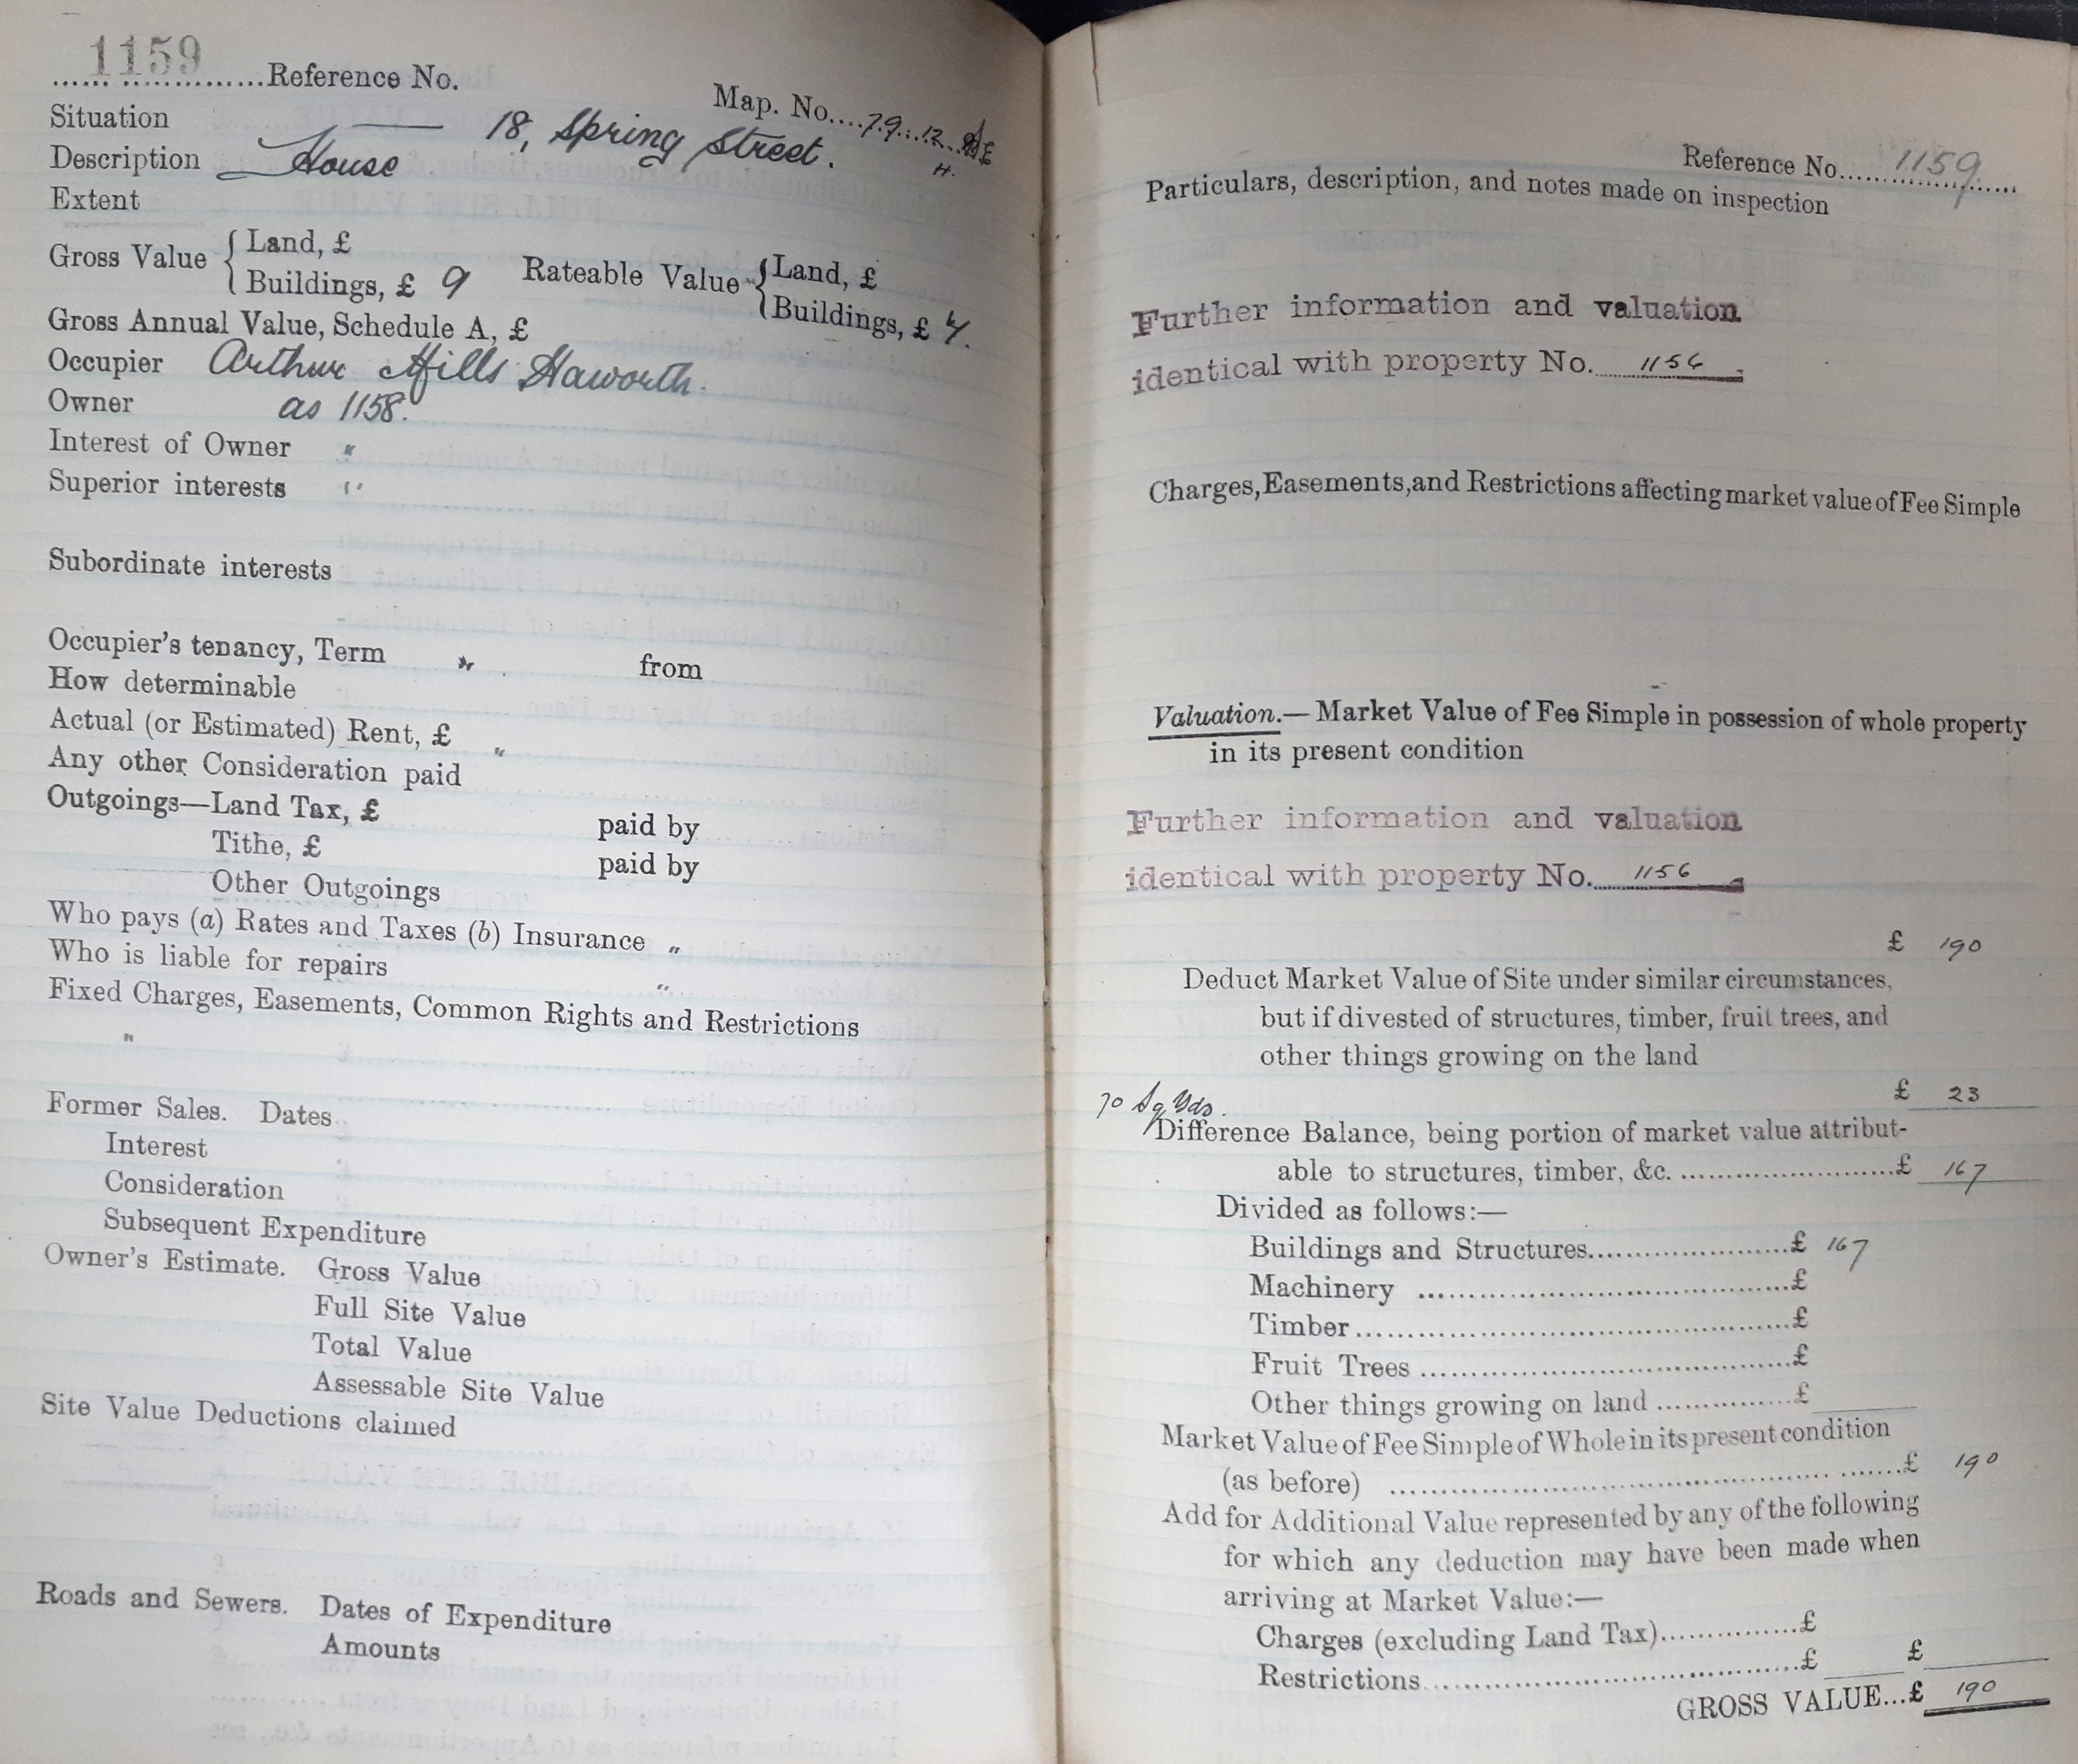 1159
Reference No.
Map. No. 79. 12
Situation 18, Spring Street. H.
Description House
Extent
Gross Value { Land, £
Buildings, £ 9
Rateable Value { Land, £
Buildings, £
Gross Annual Value, Schedule A, £
Occupier Arthur Hills Haworth.
Owner as 1158.
Interest of Owner "
Superior interests "
Subordinate interests
Occupier's tenancy, Term " from
How determinable
Actual (or Estimated) Rent, £ "
Any other Consideration paid
Outgoings—Land Tax, £ paid by
Tithe, £ paid by
Other Outgoings
Who pays (a) Rates and Taxes (b) Insurance "
Who is liable for repairs "
Fixed Charges, Easements, Common Rights and Restrictions
"
Former Sales. Dates
Interest
Consideration
Subsequent Expenditure
Owner's Estimate. Gross Value
Full Site Value
Total Value
Assessable Site Value
Site Value Deductions claimed
Roads and Sewers. Dates of Expenditure
Amounts
Reference No. 1159
Particulars, description, and notes made on inspection
Further information and valuation
identical with property No. 1156
Charges, Easements, and Restrictions affecting market value of Fee Simple
Valuation.—Market Value of Fee Simple in possession of whole property
in its present condition
Further information and valuation
identical with property No. 1156
£ 190
Deduct Market Value of Site under similar circumstances,
but if divested of structures, timber, fruit trees, and
other things growing on the land
£ 23
70 Sq Yds.
Difference Balance, being portion of market value attribut-
able to structures, timber, &c. £ 167
Divided as follows:—
Buildings and Structures £ 167
Machinery £
Timber £
Fruit Trees £
Other things growing on land £
Market Value of Fee Simple of Whole in its present condition
(as before) £ 190
Add for Additional Value represented by any of the following
for which any deduction may have been made when
arriving at Market Value:—
Charges (excluding Land Tax) £
Restrictions £ £
GROSS VALUE...£ 190